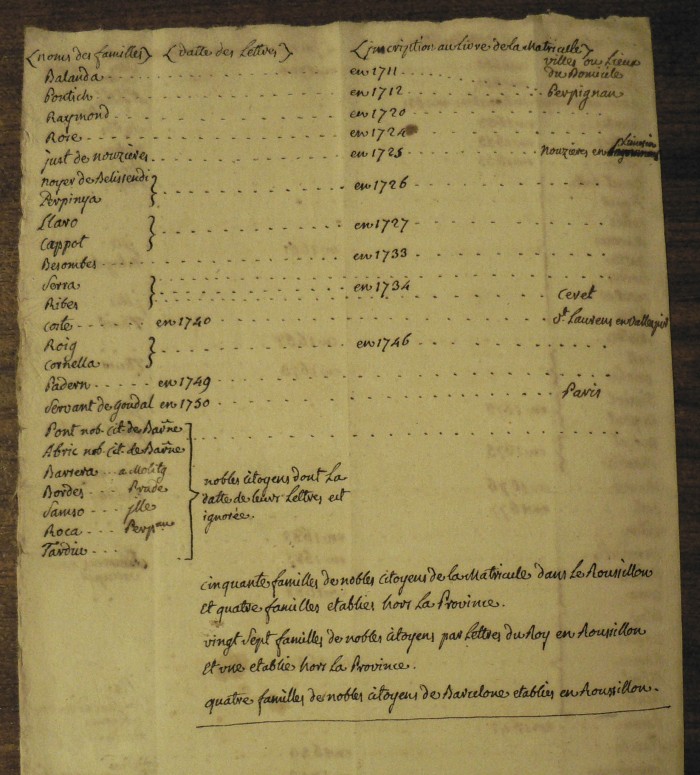 (noms des familles) (datte des Lettres) (inscription au Livre de la Matricule) villes ou Lieux
du Domicile
Balanda en 1711
Pontich en 1712 Perpignan
Raymond en 1720
Rore en 1724
just de nouzieres en 1725 nouzieres en
noyer de Belissendi
Perpinya
en 1726
Llaro
Cappot
en 1727
Besombes en 1733
Serra
Ribes
en 1734
Ceret
coste en 1740 St Laurens en Vallespir
Roig
Cornella
en 1746
Padern en 1749
Servant de goudal en 1750 Paris
Pont nob. cit. de Barne
Abric nob. cit. de Barne
Barrera a Molitg
Bordes Prade
Samso jlle
Roca Perpau
Tardiu
nobles citoyens dont La
datte de leurs Lettres est
ignorée.
cinquante familles de nobles Citoyens de la Matricule dans Le Roussillon
Et quatre familles etablies hors La Province.
vingt Sept familles de nobles citoyens par Lettres du Roy en Roussillon
Et une etablie hors La Province.
quatre familles de nobles citoyens de Barcelone etablies en Roussillon.